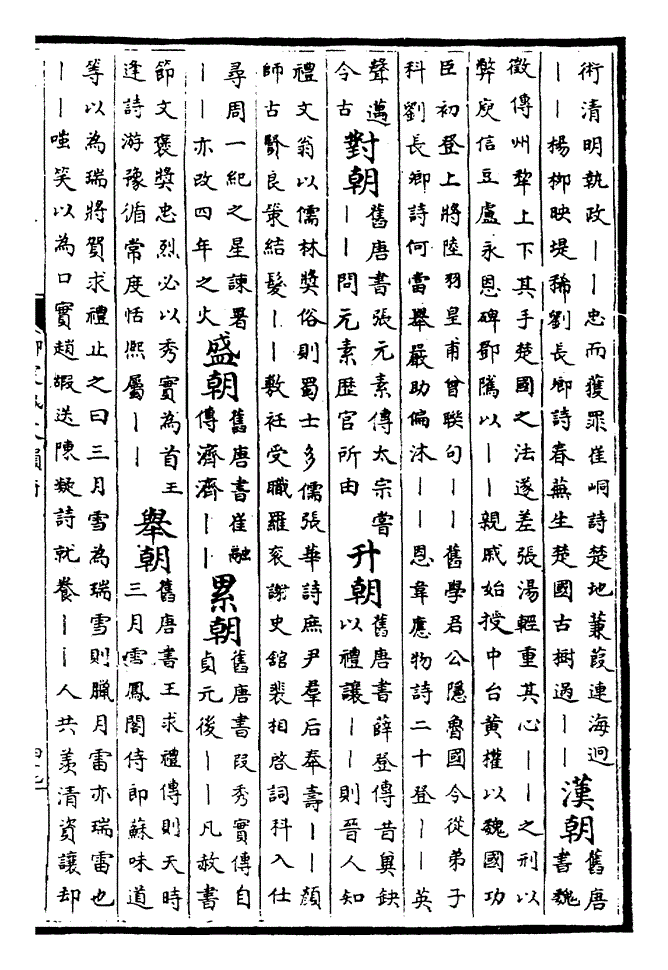 術清明執政——忠而獲罪崔峒詩楚地蒹葭連海迥
——楊柳映堤稀劉長卿詩春蕪生楚國古樹過——
漢朝
舊唐
書魏
徵傳州犂上下其手楚國之法遂差張湯輕重其心——之刑以
弊庾信豆盧永恩碑鄧隲以——親戚始授中台黄權以魏國功
臣初登上將陸羽皇甫曾聯句——舊學君公隠魯國今從弟子
科劉長卿詩何當舉嚴助偏沐——恩韋應物詩二十登——英
聲邁
今古
對朝
舊唐書張元素傳太宗嘗
——問元素歴官所由
升朝
舊唐書薛登傳昔冀缺
以禮讓——則晉人知
禮文翁以儒林奬俗則蜀士多儒張華詩庶尹羣后奉壽——顔
師古賢良策結髮——敷衽受職羅衮謝史舘裴相啓詞科入仕
尋周一紀之星諫署
——亦改四年之火
盛朝
舊唐書崔融
傳濟濟——
累朝
舊唐書段秀實傳自
貞元後——凡赦書
節文褒奬忠烈必以秀實為首王
逢詩游豫循常度恬熙屬——
舉朝
舊唐書王求禮傳則天時
三月雪鳳閣侍郎蘇味道
等以為瑞將賀求禮止之曰三月雪為瑞雪則臘月雷亦瑞雷也
——嗤笑以為口實趙嘏送陳詩就養——人共羡清資讓却